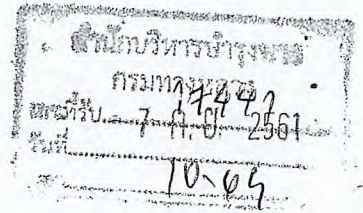 สำนักบริหารบำรุงทาง
กรมทางหลวง
เลขที่รับ 17441
วันที่ 7 ก.ย. 2561
10.09